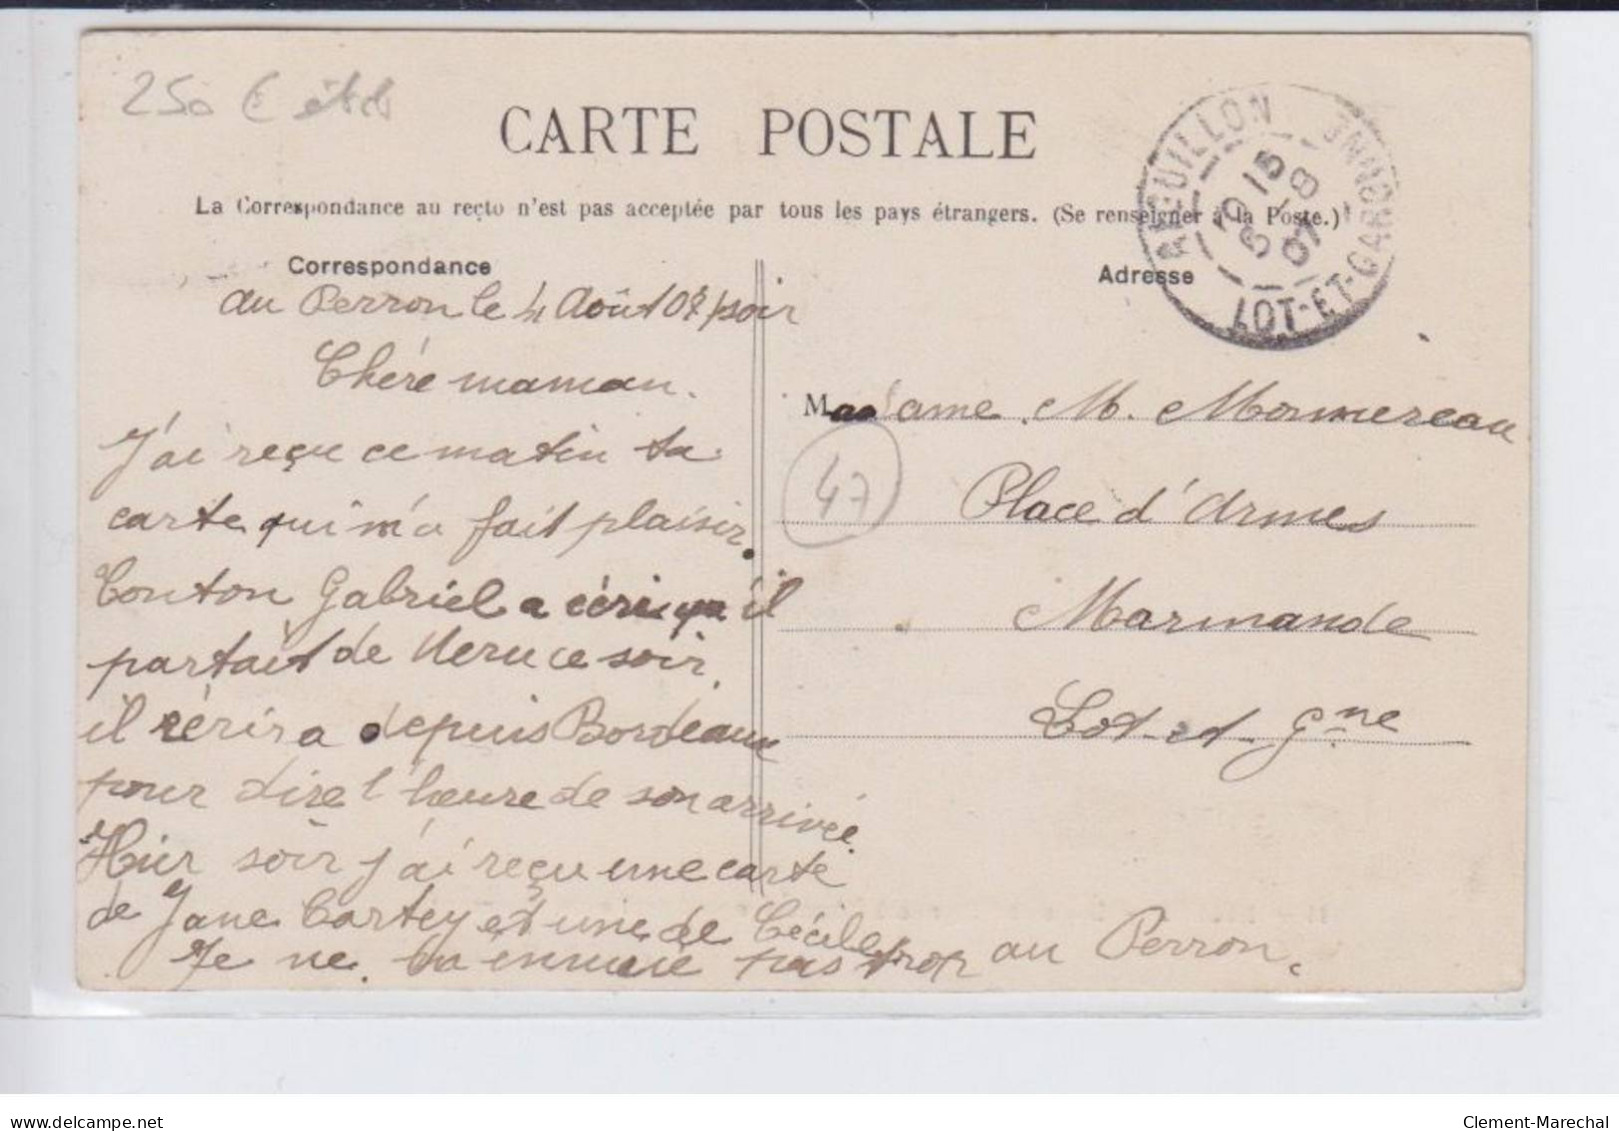 250 €
CARTE POSTALE
La Correspondance au recto n'est pas acceptée par tous les pays étrangers. (Se renseigner à la Poste.)
AIGUILLON
LOT-ET-GARONNE
5 -8
07
Correspondance
au Perron le 4 Août 07 soir
Chére maman.
J'ai reçu ce matin ta
carte qui m'a fait plaisir.
Tonton Gabriel a écri qu'il
partait de ce soir.
il écrira depuis Bordeaux
pour dire l'heure de son arrivée.
Hier soir j'ai reçu une carte
de Jane Cartey et une de Cécile
Je ne ennuie pas trop au Perron.
Adresse
Madame M. Monmereau
47
Place d'Armes
Marmande
Lot-et-Gne
Clement-Marechal